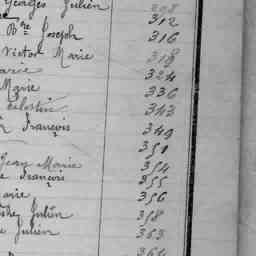 Georges Julien 308
Bte Joseph 312
316
Victor Marie 318
Marie 324
Marie 336
Celestin 343
François 349
351
Jean Marie 354
François 355
Marie 356
Julien 358
Julien 363
364